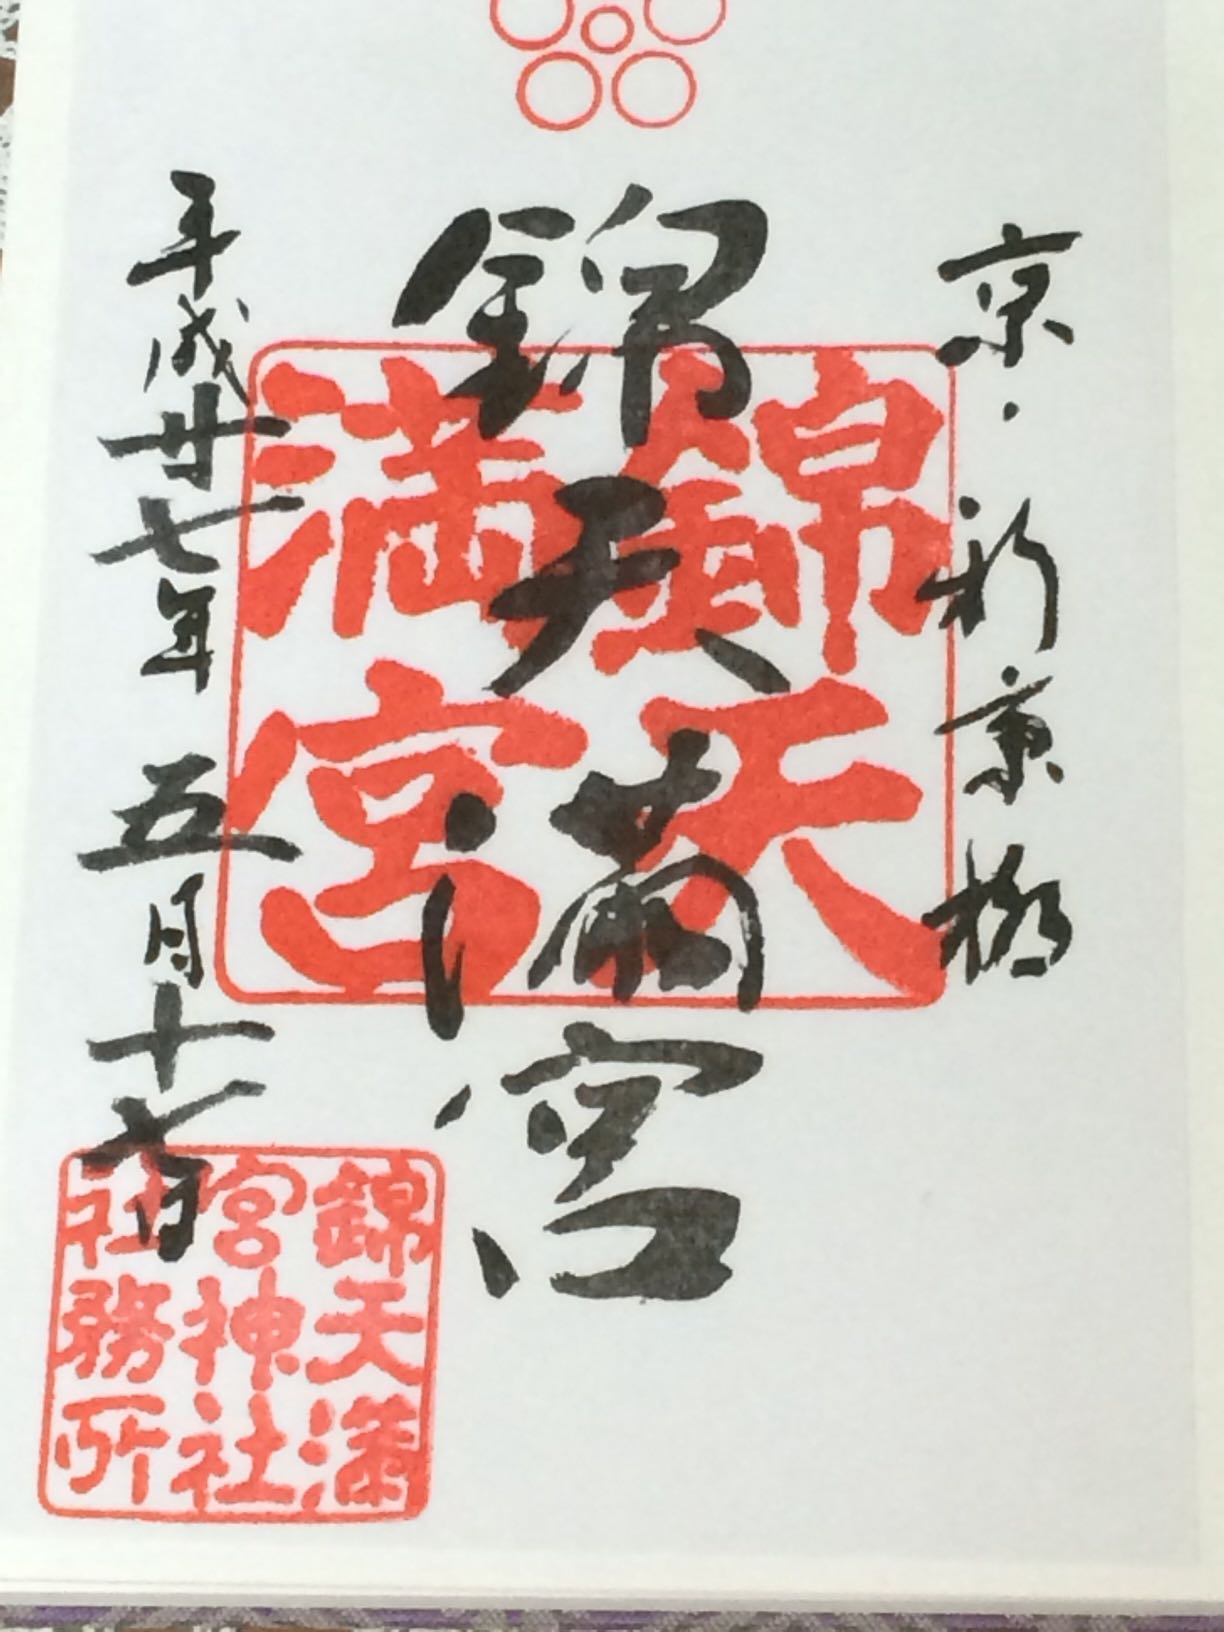 京・新京極
錦天満宮
平成廿七年 五月十七日
錦天
満宮
錦天満
宮神社
社務所